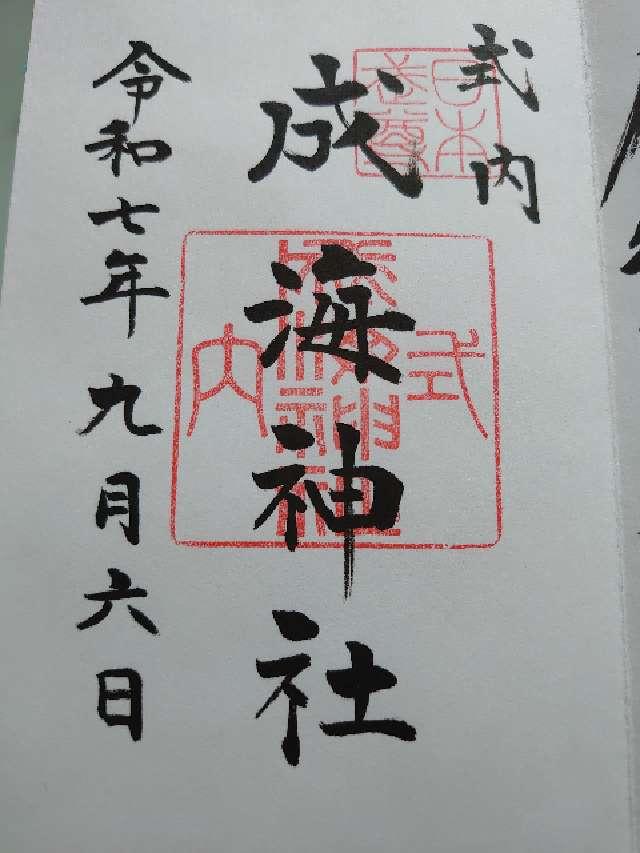 式内
成海神社
令和七年九月六日
日本武尊
式内
成海神社